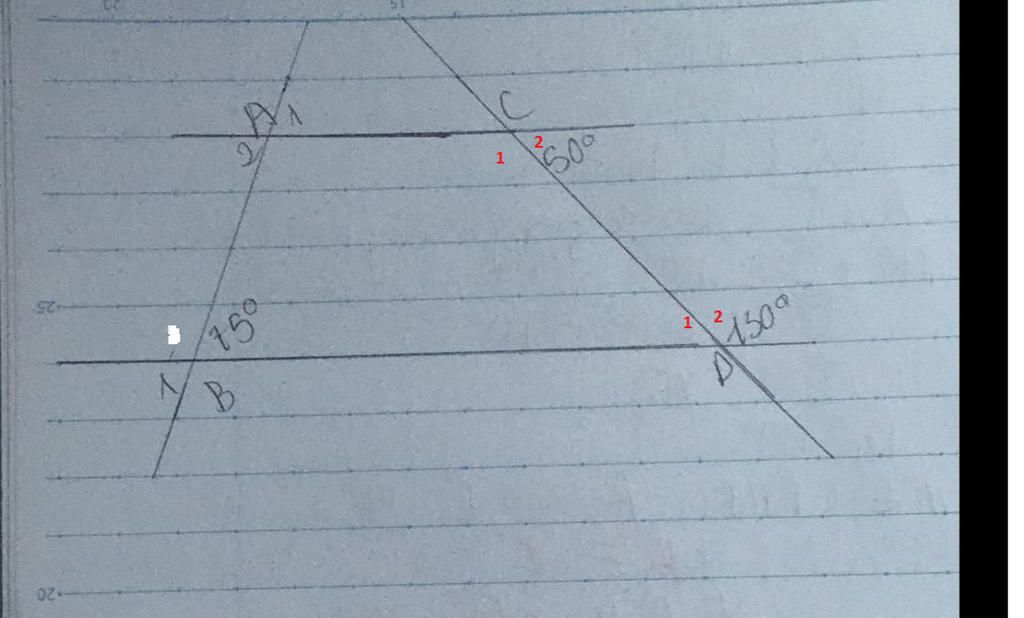 A 1
C
2
1
2
50°
25
75°
1
2
130°
1
B
D
20